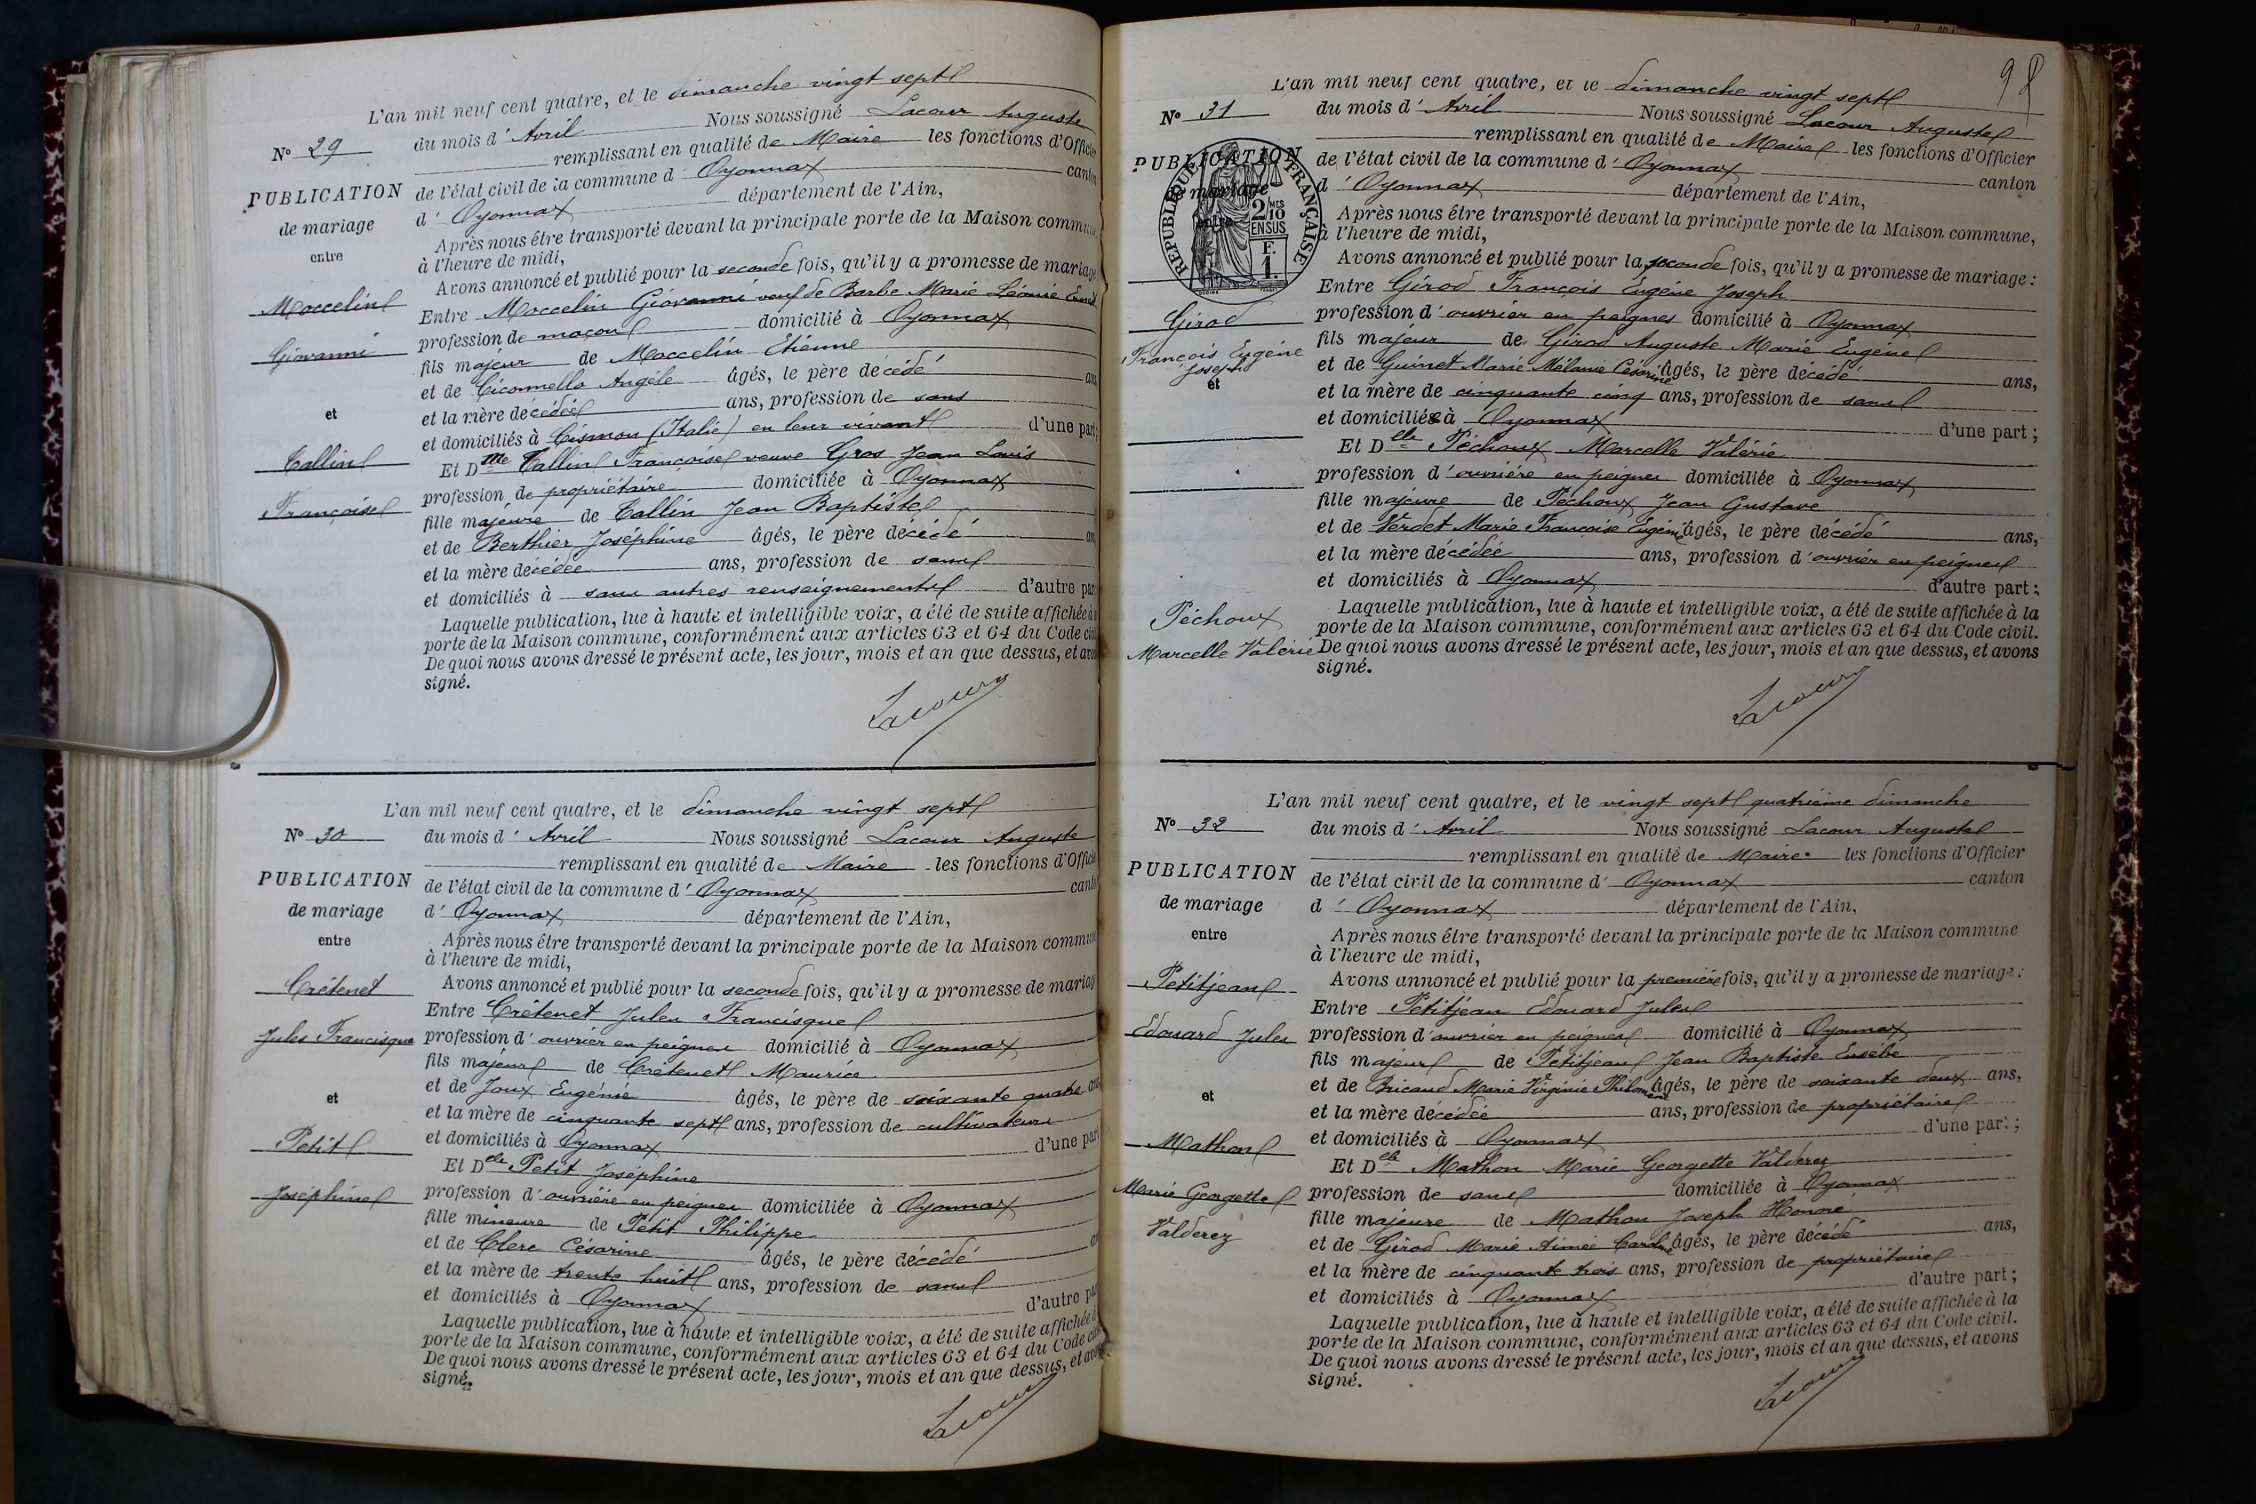 L'an mil neuf cent quatre, et le dimanche vingt sept
du mois d' Avril Nous soussigné Lacour Auguste
remplissant en qualité de Maire les fonctions d'Officier
de l'état civil de la commune d' Oyonnax canton
d' Oyonnax département de l'Ain,
Après nous être transporté devant la principale porte de la Maison commune
à l'heure de midi,
Avons annoncé et publié pour la seconde fois, qu'il y a promesse de mariage
Entre Moccelin Giovanni veuf de Barbe Marie Léonie
profession de maçon domicilié à Oyonnax
fils majeur de Moccelin Etienne
et de Ciconnello Angèle âgés, le père décédé ans
et la mère décédée ans, profession de sans
et domiciliés à Cismon (Italie) en leur vivant d'une part;
Et Dme Tallin Françoise veuve Gros Jean Louis
profession de propriétaire domiciliée à Oyonnax
fille majeure de Tallin Jean Baptiste
et de Berthier Joséphine âgés, le père décédé ans
et la mère décédée ans, profession de sans
et domiciliés à sans autres renseignements d'autre part
Laquelle publication, lue à haute et intelligible voix, a été de suite affichée à la
porte de la Maison commune, conformément aux articles 63 et 64 du Code civil
De quoi nous avons dressé le présent acte, les jour, mois et an que dessus, et avons
signé.
Lacour
N° 29
PUBLICATION
de mariage
entre
Moccelin
Giovanni
et
Tallin
Françoise
L'an mil neuf cent quatre, et le dimanche vingt sept
du mois d' Avril Nous soussigné Lacour Auguste
remplissant en qualité de Maire les fonctions d'Officier
de l'état civil de la commune d' Oyonnax canton
d' Oyonnax département de l'Ain,
Après nous être transporté devant la principale porte de la Maison commune
à l'heure de midi,
Avons annoncé et publié pour la seconde fois, qu'il y a promesse de mariage
Entre Crétenet Jules Francisque
profession d' ouvrier en peignes domicilié à Oyonnax
fils majeur de Crétenet Maurice
et de Joux Eugénie âgés, le père de soixante quatre ans
et la mère de cinquante sept ans, profession de cultivateurs
et domiciliés à Oyonnax d'une part
Et Delle Petit Joséphine
profession d' ouvrière en peignes domiciliée à Oyonnax
fille mineure de Petit Philippe
et de Clerc Césarine âgés, le père décédé ans
et la mère de trente huit ans, profession de sans
et domiciliés à Oyonnax d'autre part
Laquelle publication, lue à haute et intelligible voix, a été de suite affichée à la
porte de la Maison commune, conformément aux articles 63 et 64 du Code civil
De quoi nous avons dressé le présent acte, les jour, mois et an que dessus, et avons
signé.
Lacour
N° 30
PUBLICATION
de mariage
entre
Crétenet
Jules Francisque
et
Petit
Joséphine
98
L'an mil neuf cent quatre, et le dimanche vingt sept
du mois d' Avril Nous soussigné Lacour Auguste
remplissant en qualité de Maire les fonctions d'Officier
de l'état civil de la commune d' Oyonnax canton
d' Oyonnax département de l'Ain,
Après nous être transporté devant la principale porte de la Maison commune,
à l'heure de midi,
Avons annoncé et publié pour la seconde fois, qu'il y a promesse de mariage :
Entre Girod François Eugène Joseph
profession d' ouvrier en peignes domicilié à Oyonnax
fils majeur de Girod Auguste Marie Eugène
et de Guinet Marie Mélanie Césarine âgés, le père décédé ans,
et la mère de cinquante cinq ans, profession de sans
et domiciliés à Oyonnax d'une part ;
Et Delle Péchoux Marcelle Valérie
profession d' ouvrière en peignes domiciliée à Oyonnax
fille majeure de Péchoux Jean Gustave
et de Verdet Marie Françoise Eugénie âgés, le père décédé ans,
et la mère décédée ans, profession d' ouvrier en peignes
et domiciliés à Oyonnax d'autre part ;
Laquelle publication, lue à haute et intelligible voix, a été de suite affichée à la
porte de la Maison commune, conformément aux articles 63 et 64 du Code civil.
De quoi nous avons dressé le présent acte, les jour, mois et an que dessus, et avons
signé.
Lacour
N° 31
PUBLICATION
de mariage
entre
RÉPUBLIQUE FRANÇAISE
2/10MES
EN SUS
F.
1.
Girod
François Eugène
Joseph
et
Péchoux
Marcelle Valérie
L'an mil neuf cent quatre, et le vingt sept quatrième dimanche
du mois d' Avril Nous soussigné Lacour Auguste
remplissant en qualité de Maire les fonctions d'Officier
de l'état civil de la commune d' Oyonnax canton
d' Oyonnax département de l'Ain,
Après nous être transporté devant la principale porte de la Maison commune
à l'heure de midi,
Avons annoncé et publié pour la première fois, qu'il y a promesse de mariage :
Entre Petitjean Edouard Jules
profession d' ouvrier en peignes domicilié à Oyonnax
fils majeur de Petitjean Jean Baptiste Eusèbe
et de Bricaud Marie Virginie Philomène âgés, le père de soixante deux ans,
et la mère décédée ans, profession de propriétaire
et domiciliés à Oyonnax d'une part ;
Et Delle Mathon Marie Georgette Valderez
profession de sans domiciliée à Oyonnax
fille majeure de Mathon Joseph Honoré
et de Girod Marie Aimée Caroline âgés, le père décédé ans,
et la mère de cinquante trois ans, profession de propriétaire
et domiciliés à Oyonnax d'autre part ;
Laquelle publication, lue à haute et intelligible voix, a été de suite affichée à la
porte de la Maison commune, conformément aux articles 63 et 64 du Code civil.
De quoi nous avons dressé le présent acte, les jour, mois et an que dessus, et avons
signé.
Lacour
N° 32
PUBLICATION
de mariage
entre
Petitjean
Edouard Jules
et
Mathon
Marie Georgette
Valderez